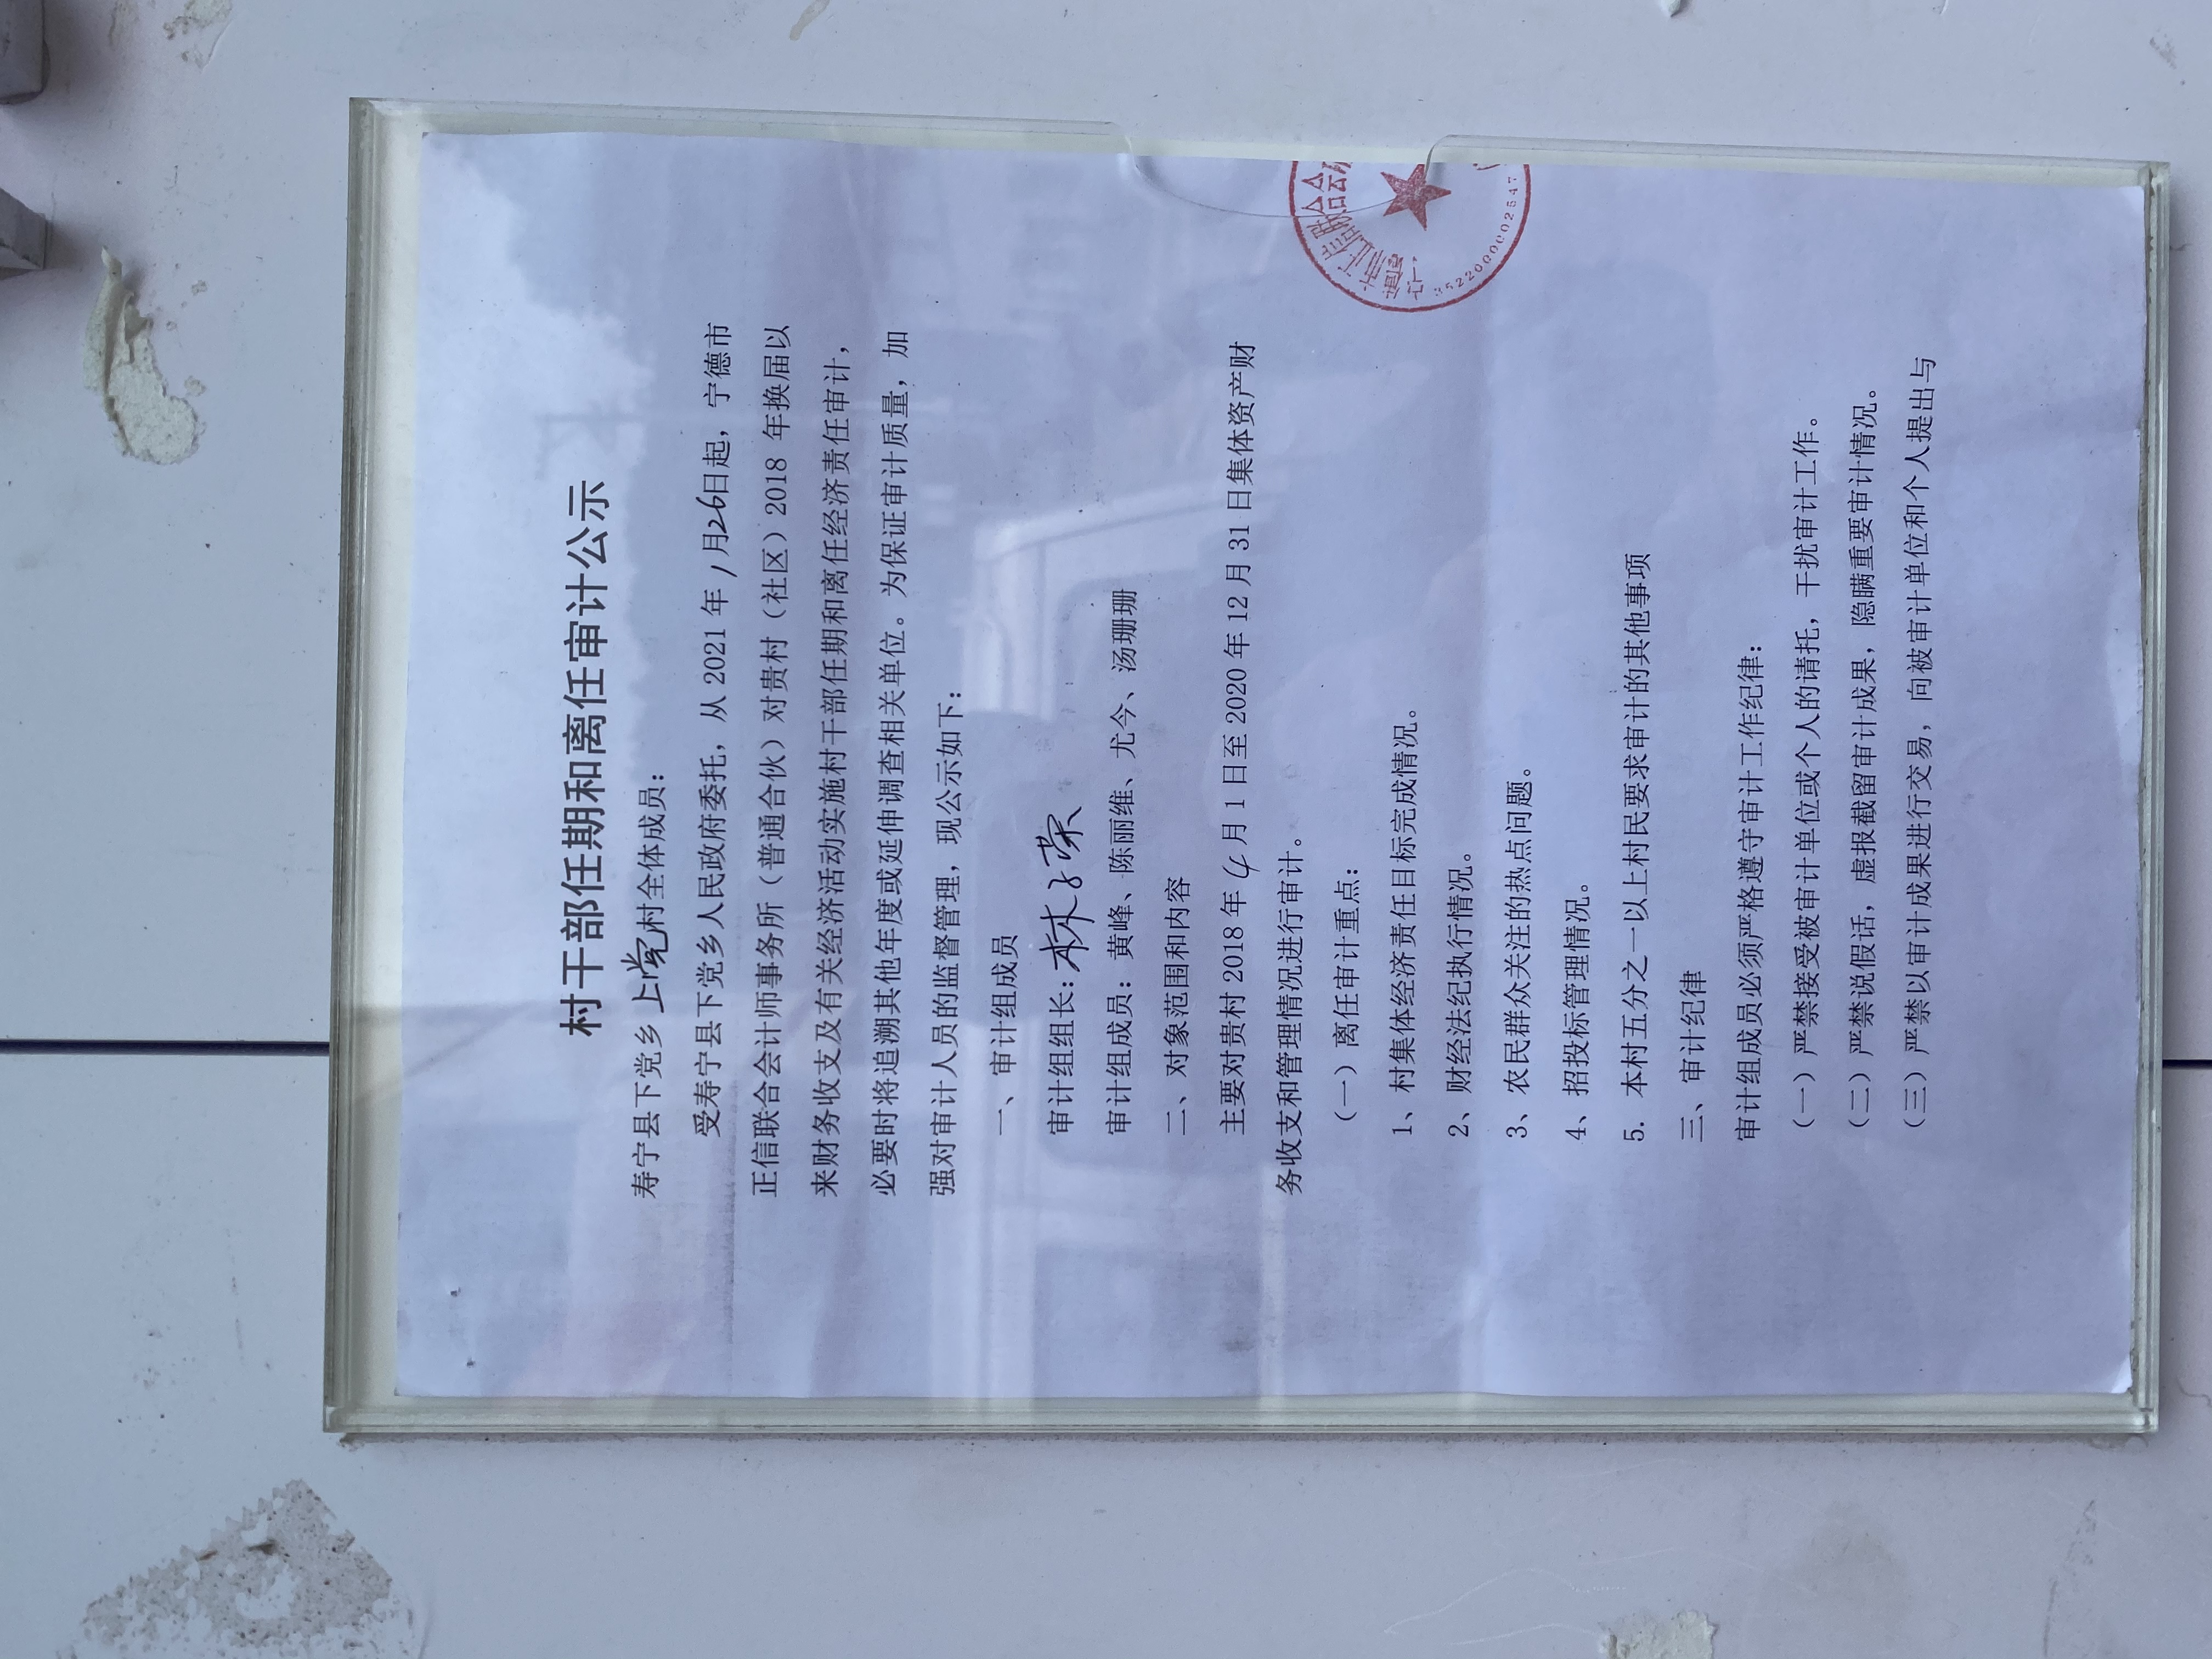 村干部任期和离任审计公示
寿宁县下党乡上党村全体成员：
受寿宁县下党乡人民政府委托，从 2021 年 1 月26日起，宁德市
正信联合会计师事务所（普通合伙）对贵村（社区）2018 年换届以
来财务收支及有关经济活动实施村干部任期和离任经济责任审计，
必要时将追溯其他年度或延伸调查相关单位。为保证审计质量，加
强对审计人员的监督管理，现公示如下：
一、审计组成员
审计组组长：林子荣
审计组成员：黄峰、陈丽维、尤今、汤珊珊
二、对象范围和内容
主要对贵村 2018 年 4 月 1 日至 2020 年 12 月 31 日集体资产财
务收支和管理情况进行审计。
（一）离任审计重点：
1、村集体经济责任目标完成情况。
2、财经法纪执行情况。
3、农民群众关注的热点问题。
4、招投标管理情况。
5. 本村五分之一以上村民要求审计的其他事项
三、审计纪律
审计组成员必须严格遵守审计工作纪律：
（一）严禁接受被审计单位或个人的请托，干扰审计工作。
（二）严禁说假话，虚报截留审计成果，隐瞒重要审计情况。
（三）严禁以审计成果进行交易，向被审计单位和个人提出与
市正信联合会
3522000002547